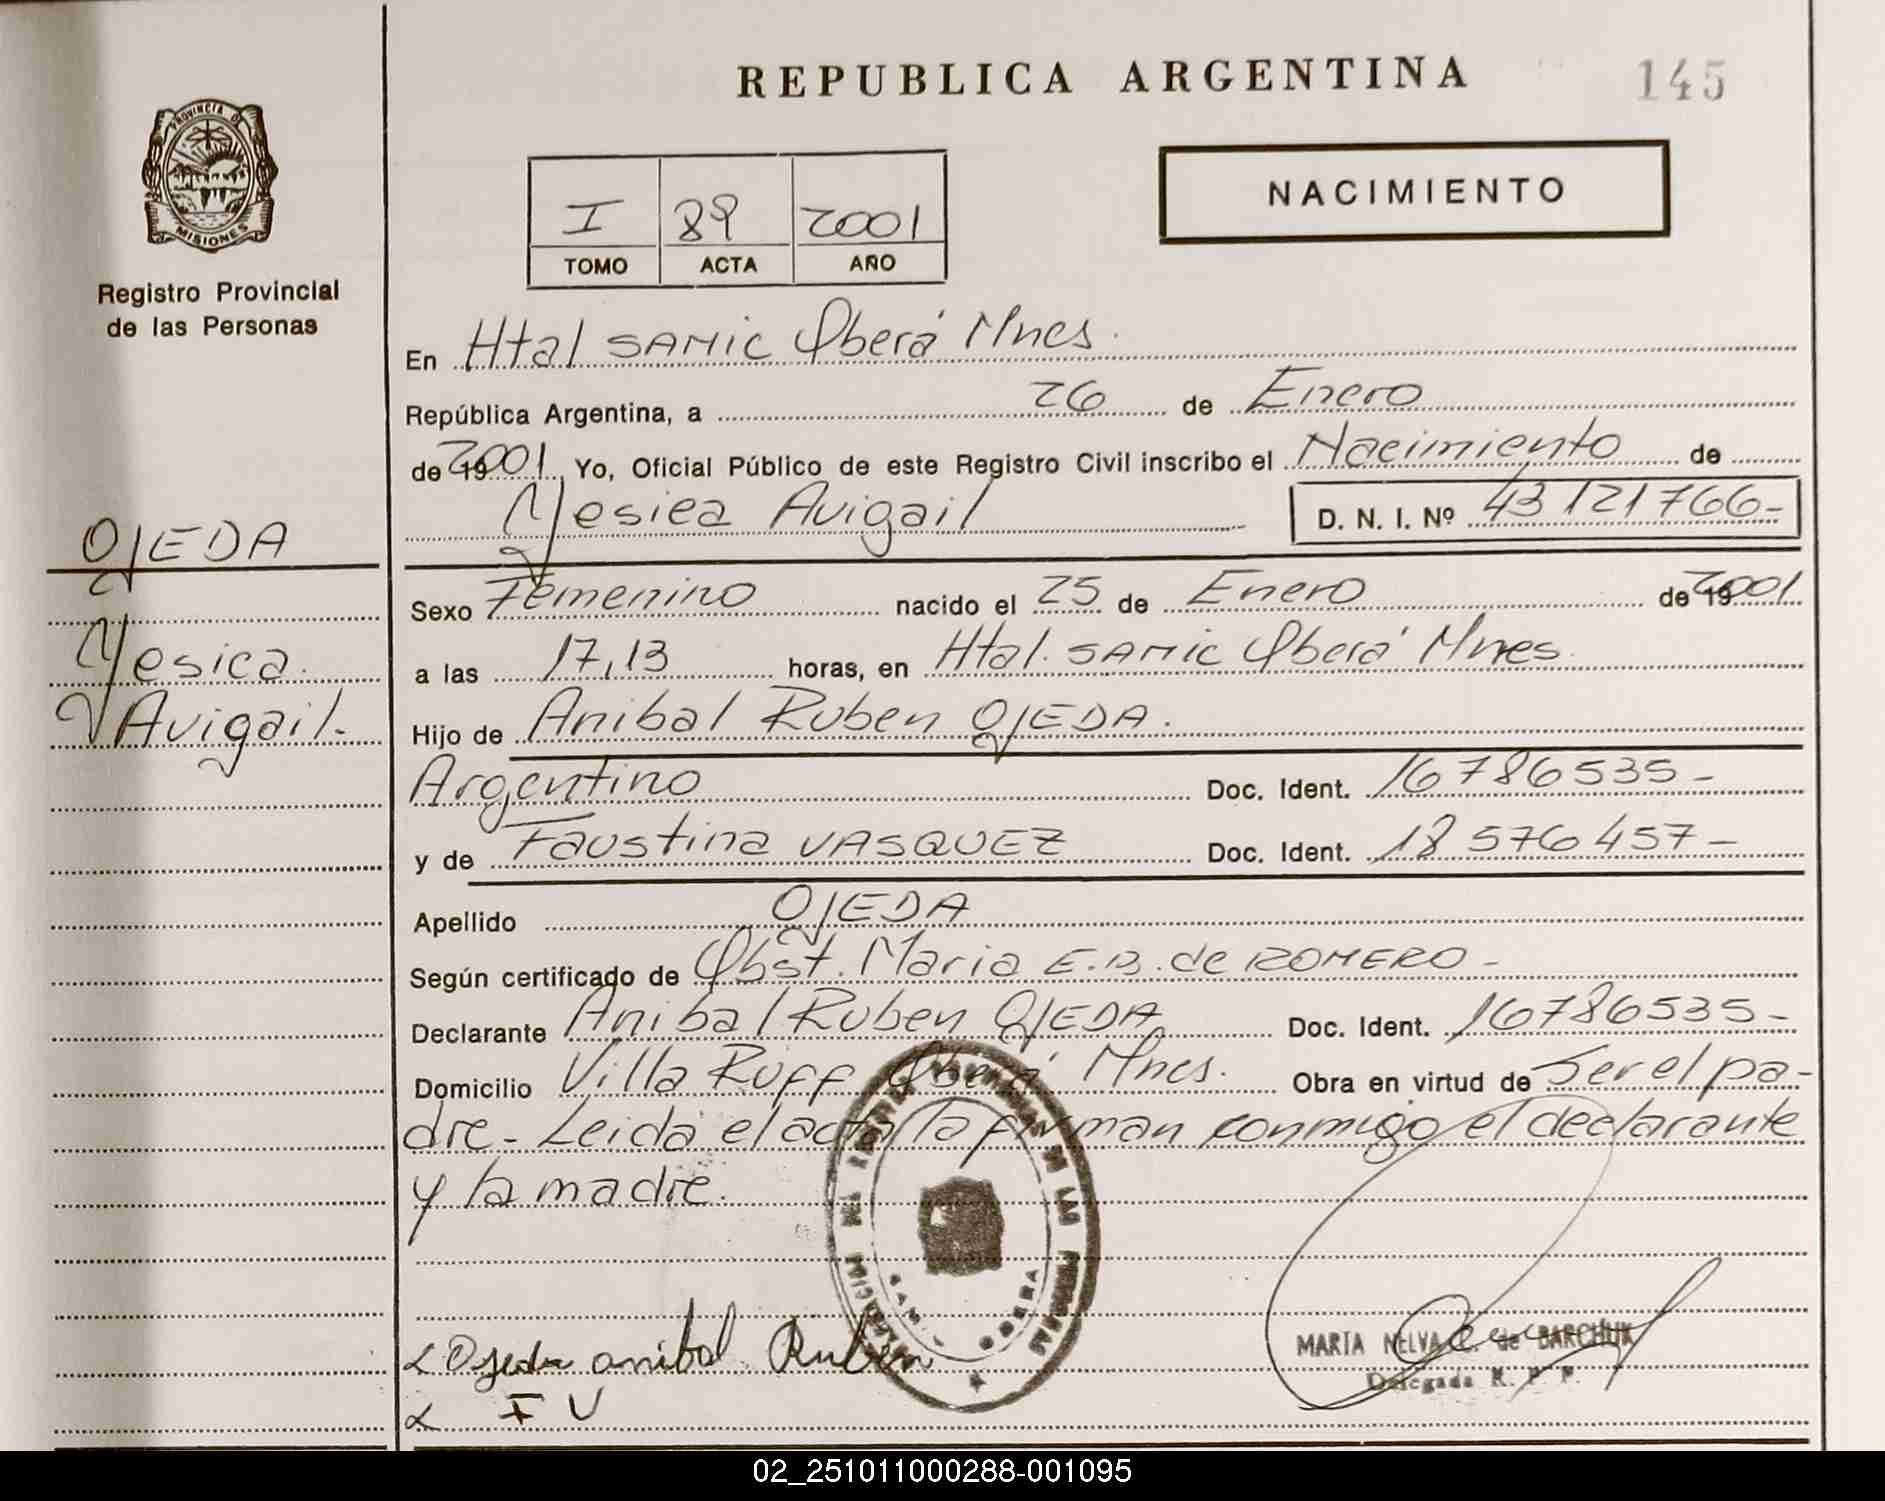 REPUBLICA ARGENTINA
145
PROVINCIA DE
MISIONES
Registro Provincial
de las Personas
NACIMIENTO
I 89 2001
TOMO ACTA AÑO
En Htal SAMIC Oberá Mnes.
República Argentina, a 26 de Enero
de 2001 Yo, Oficial Público de este Registro Civil inscribo el Nacimiento de
Yesica Avigail D. N. I. Nº 43121766-
OJEDA
Yesica
Avigail.
Sexo Femenino nacido el 25 de Enero de 2001
a las 17,13 horas, en Htal. SAMIC Oberá Mnes.
Hijo de Anibal Ruben OJEDA.
Argentino Doc. Ident. 16786535-
y de Faustina VASQUEZ Doc. Ident. 18576457-
Apellido OJEDA
Según certificado de Obst. Maria E.B. de ROMERO-
Declarante Anibal Ruben OJEDA Doc. Ident. 16786535-
Domicilio Villa Ruff Oberá Mnes. Obra en virtud de Ser el pa-
dre- Leida el acta la firman conmigo el declarante
y la madre.
Ojeda anibal Ruben
F V
MARIA NELVA C. de BARCHUK
Delegada R. P. P.
02_251011000288-001095